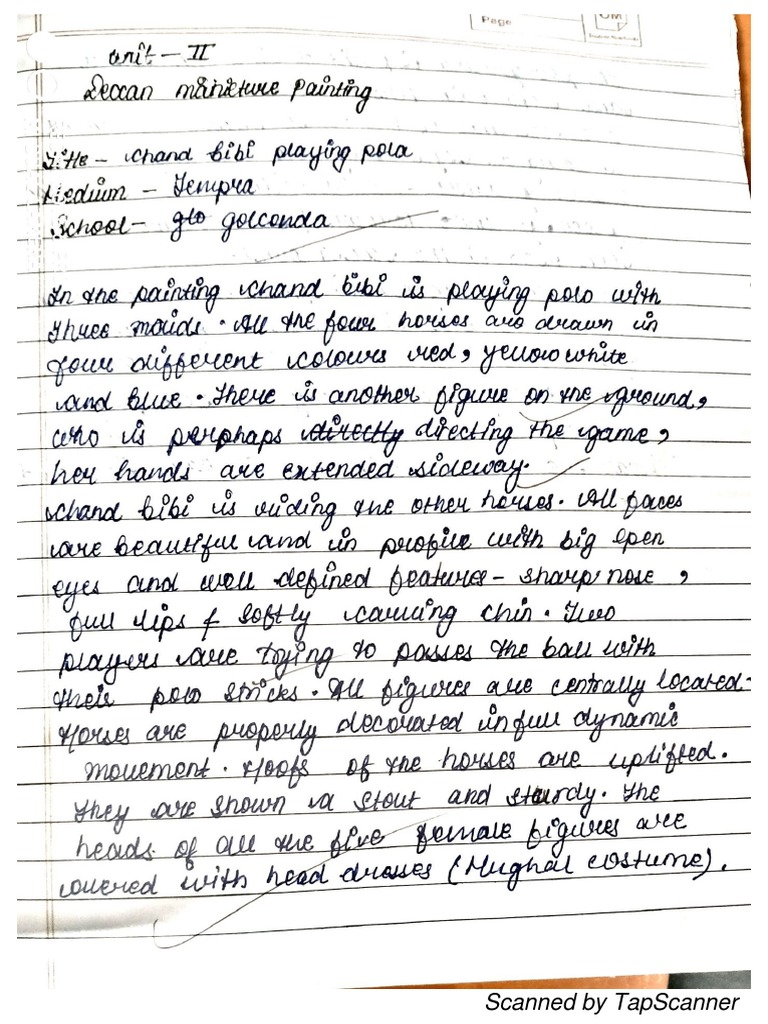 Page
OM
Unit - II
Deccan miniature painting
Title - chand bibi playing polo
Medium - Tempra
School - glo golconda
In the painting chand bibi is playing polo with
three maids. All the four horses are drawn in
four different colours red, yellow white
and blue. There is another figure on the ground,
who is perphaps directly directing the game,
her hands are extended sideway.
chand bibi is riding the other horses. All faces
are beautiful and in profile with big open
eyes and well defined features - sharp nose,
full lips & softly carving chin. Two
players are trying to passes the ball with
their polo sticks. All figures are centrally located.
Horses are properly decorated in full dynamic
movement. Hoofs of the horses are uplifted.
They are shown a stout and sturdy. The
heads of all the five female figures are
covered with head dresses (Mughal costume).
Scanned by TapScanner